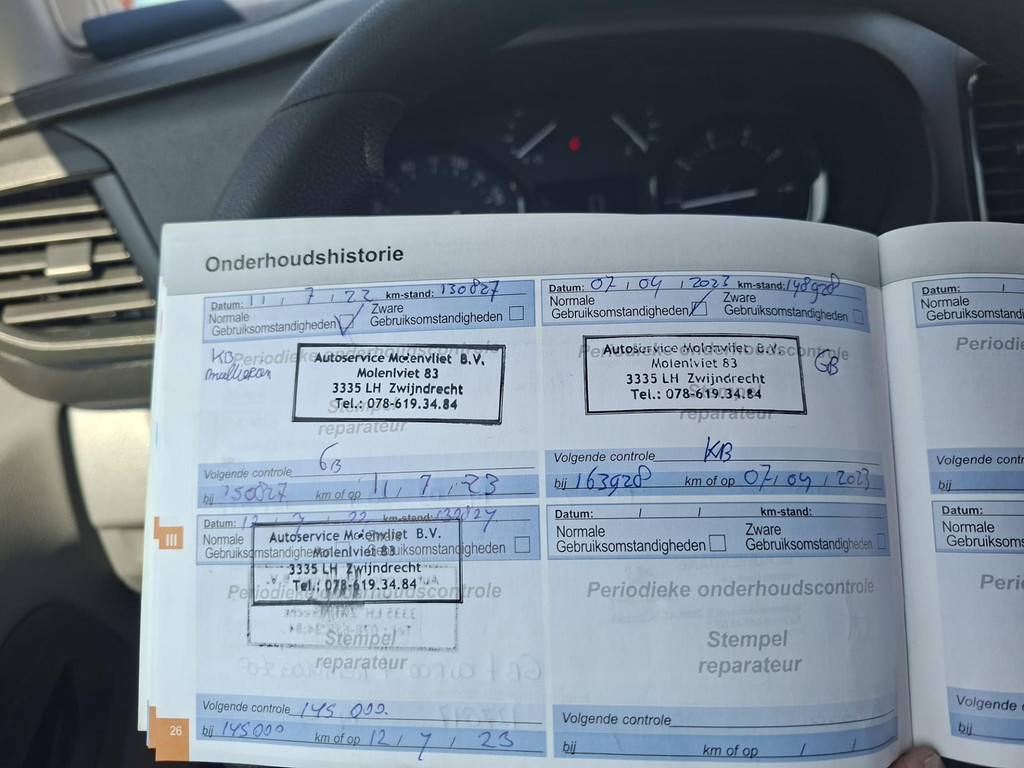 Onderhoudshistorie
Datum: 11 / 7 / 22 km-stand: 130827
Normale Gebruiksomstandigheden
Zware Gebruiksomstandigheden
KB
Periodieke onderhoudscontrole
Autoservice Molenvliet B.V.
Molenlviet 83
3335 LH Zwijndrecht
Tel.: 078-619.34.84
Stempel
reparateur
Volgende controle GB
bij 150827 km of op 11 / 7 / 23
Datum: 07 / 04 / 2023 km-stand: 148928
Normale Gebruiksomstandigheden
Zware Gebruiksomstandigheden
Periodieke onderhoudscontrole
Autoservice Molenvliet B.V.
Molenlviet 83
3335 LH Zwijndrecht
Tel.: 078-619.34.84
GB
Stempel
reparateur
Volgende controle KB
bij 163928 km of op 07 / 04 / 2023
Datum: 12 / 7 / 22 km-stand:
Normale Gebruiksomstandigheden
Gebruiksomstandigheden
Autoservice Molenvliet B.V.
Molenlviet 83
3335 LH Zwijndrecht
Tel.: 078-619.34.84
Periodieke onderhoudscontrole
Stempel
reparateur
Volgende controle 145 000.
bij 145000 km of op 12 / 7 / 23
Datum: / / km-stand:
Normale Gebruiksomstandigheden
Zware Gebruiksomstandigheden
Periodieke onderhoudscontrole
Stempel
reparateur
Volgende controle
bij km of op / /
III
26
Datum: /
Normale
Gebruiksoms
Periodi
Volgende c
bij
Datum:
Normale
Gebruiksoms
Perio
Volgende
bij